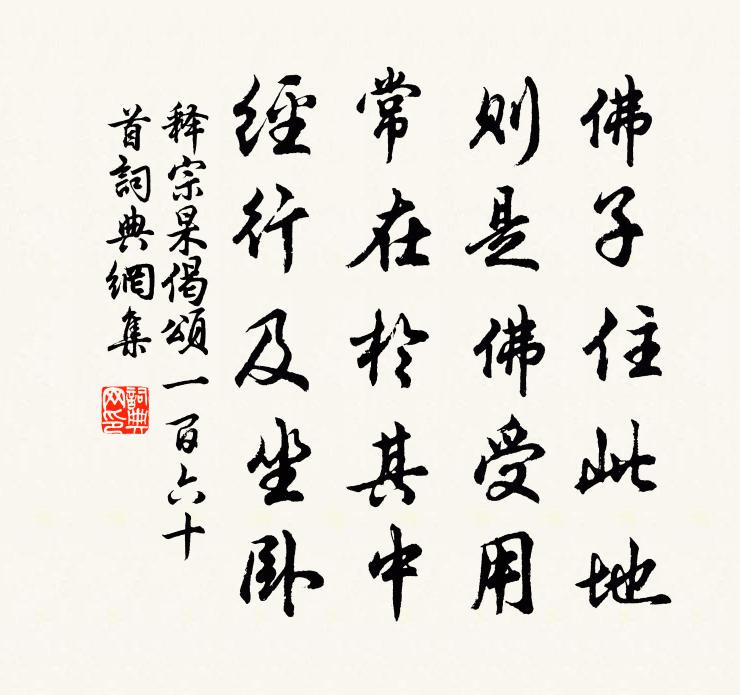 佛子住此地
則是佛受用
常在於其中
經行及坐卧
释宗杲偈頌一百六十
首詞典網集
詞典
网印